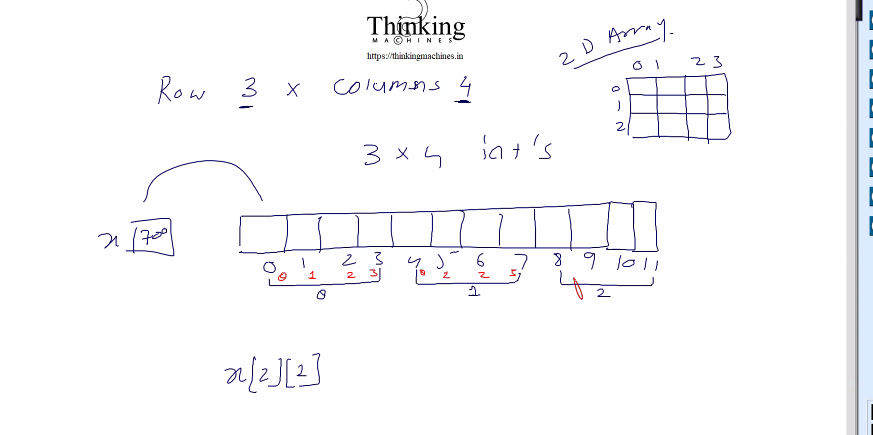 Thinking
MACHINES
https://thinkingmachines.in
2 D Array.
0 1 2 3
0
1
2
Row 3 x Columns 4
3 x 4 int's
x 1700
0 1 2 3 4 5 6 7 8 9 10 11
0 1 2 3 0 2 2 5
0 1 2
x[2][2]